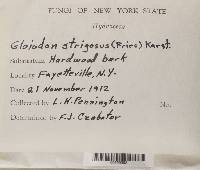 FUNGI OF NEW YORK STATE
Hydnaceae
Gloiodon strigosus (Fries) Karst.
Substratum Hardwood bark
Locality Fayetteville, N.Y.
Date 21 November 1912
Collected by L. H. Pennington No.
Determined by F. J. Czabator